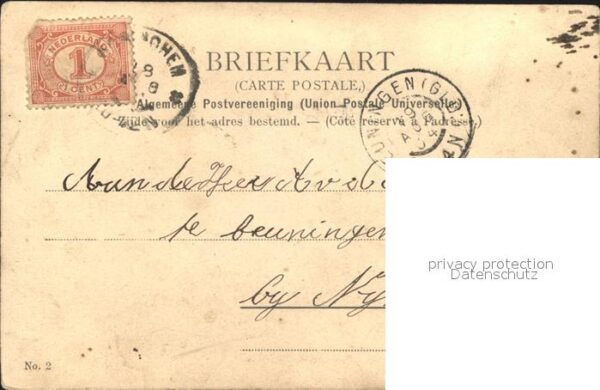 NEDERLAND
1
CENT
BRIEFKAART
(CARTE POSTALE,)
Algemeene Postvereeniging (Union Postale Universelle)
Zijde voor het adres bestemd. — (Côté réservé à l'adresse.)
Aan de Heer
te beuningen
by Ny
privacy protection
Datenschutz
No. 2